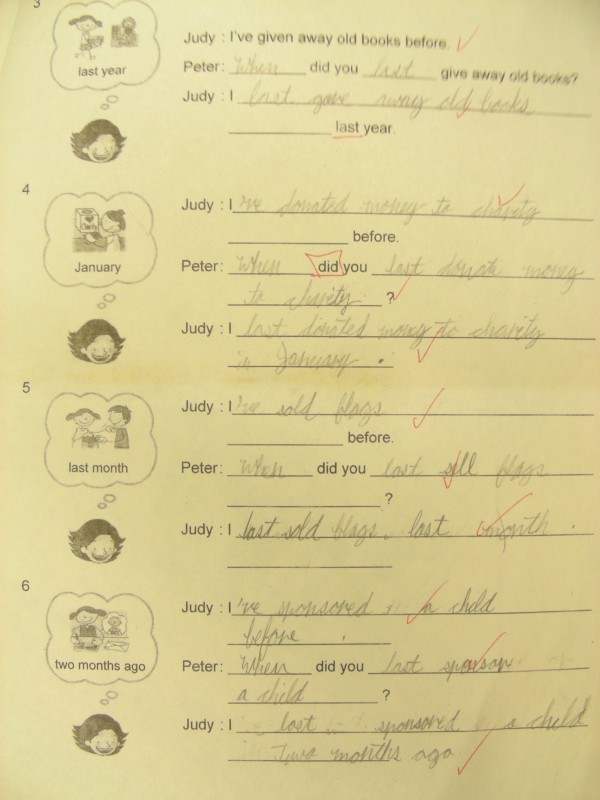 3
last year
Judy : I've given away old books before.
Peter: When did you last give away old books?
Judy : I last gave away old books
last year.
4
January
Judy : I 've donated money to charity
before.
Peter: When did you last donate money
to charity ?
Judy : I last donated money to charity
in January .
5
last month
Judy : I 've sold flags
before.
Peter: When did you last sell flags
?
Judy : I last sold flags last month .
6
two months ago
Judy : I 've sponsored a child
before .
Peter: When did you last sponsor
a child ?
Judy : I last sponsored a child
two months ago